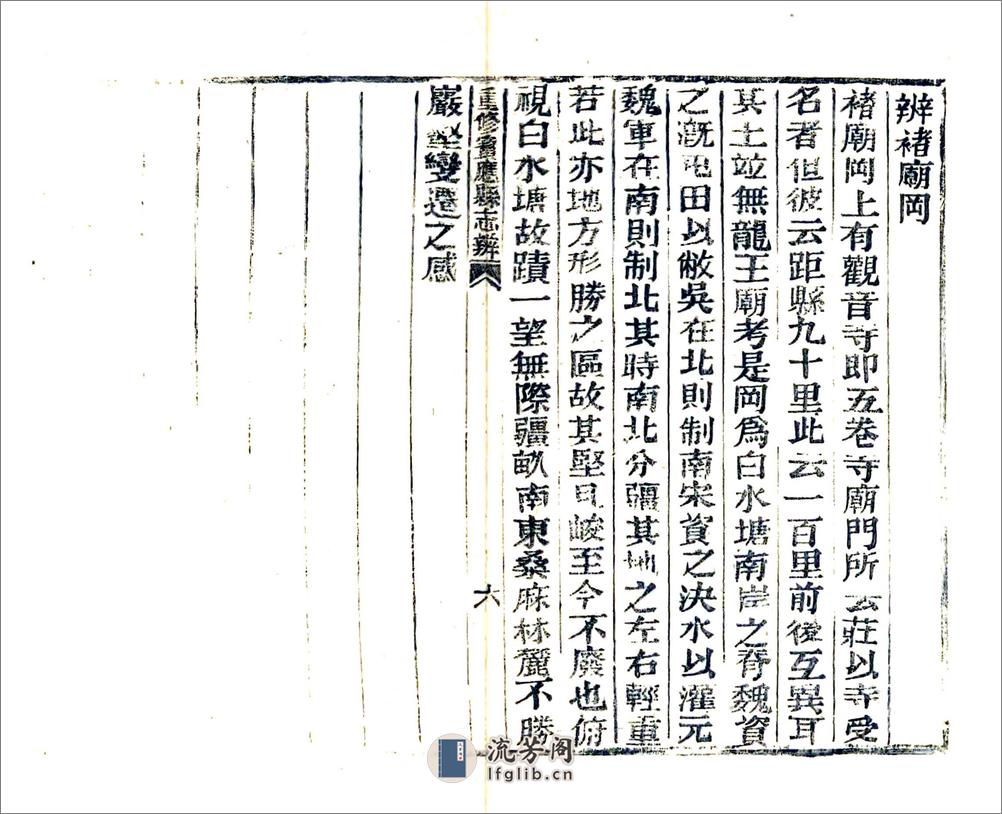 辨褚廟岡
褚廟岡上有觀音寺即五卷寺廟門所云莊以寺受
名者但彼云距縣九十里此云一百里前後互異耳
其上並無龍王廟考是岡爲白水塘南岸之脊魏資
之漑屯田以敝吳在北則制南宋資之決水以灌元
魏軍在南則制北其時南北分疆其地之左右輕重
若此亦地方形勝之區故其堅且峻至今不廢也俯
視白水塘故蹟一望無際疆畝南東桑麻林麓不勝
重修寶應縣志辨
六
巖壑變遷之感
流芳阁
lfglib.cn